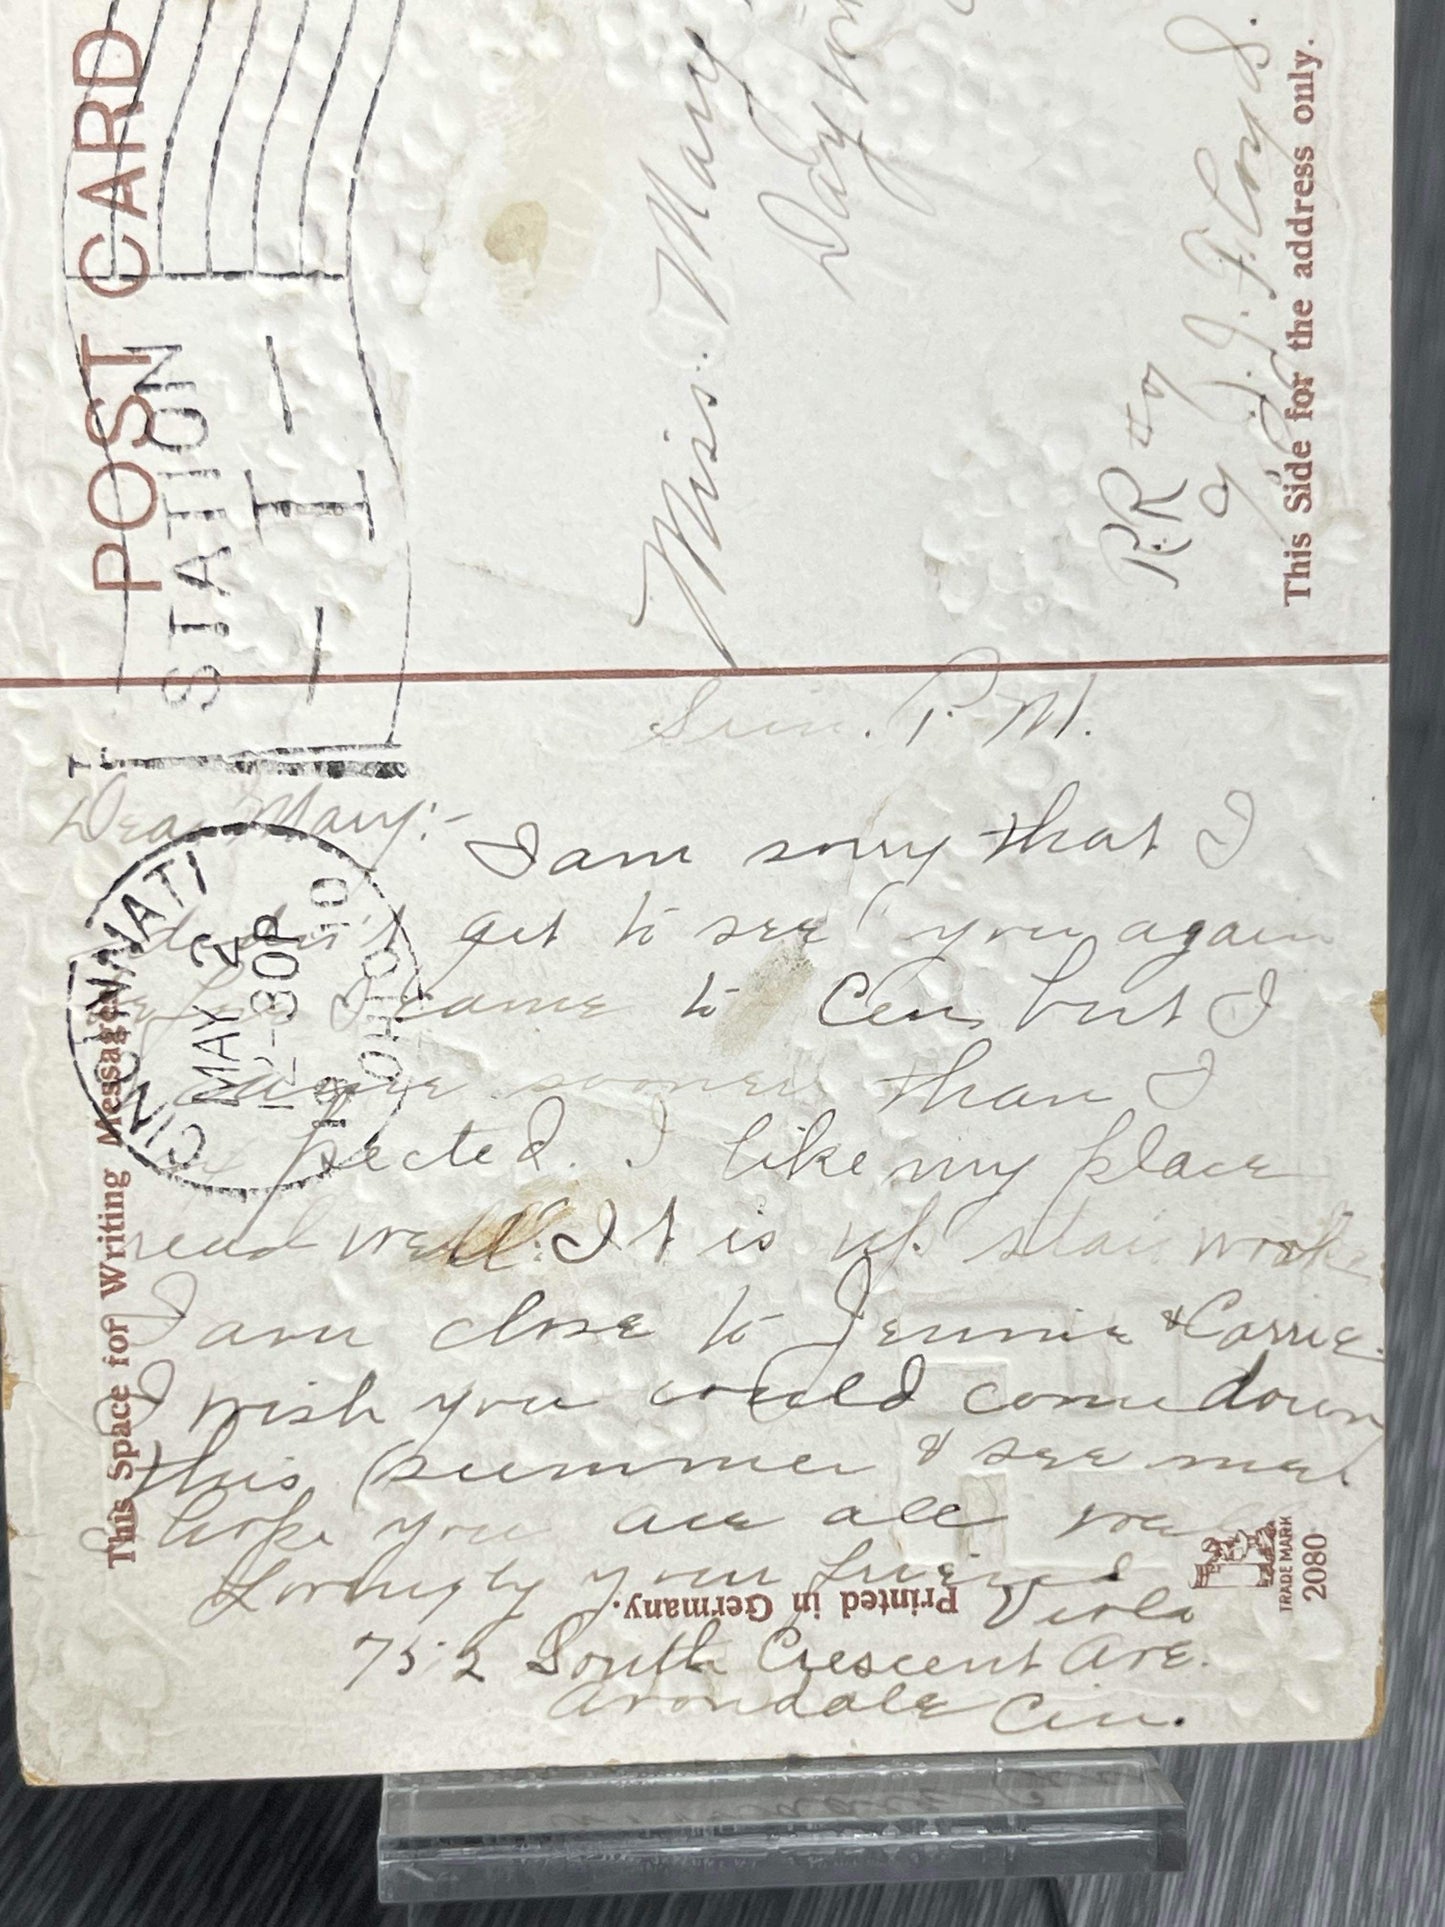 POST CARD
CINCINNATI
MAY 2
12-30P
1910
OHIO
STATION
- I -
This Space for Writing Messages
Sun. P. M.
Dear Mary:-
I am sorry that I
didn't get to see you again
before I came to Cin, but I
came sooner than I
expected. I like my place
real well. It is up stair work
I am close to Jennie & Carrie.
I wish you could come down
this summer & see me.
hope you are all well
Lovingly your friend
Viola
752 South Crescent Ave.
Avondale Cin.
Printed in Germany.
TRADE MARK
2080
Miss. Mary
Dayton
R.R #9
J. Floyd.
This Side for the address only.